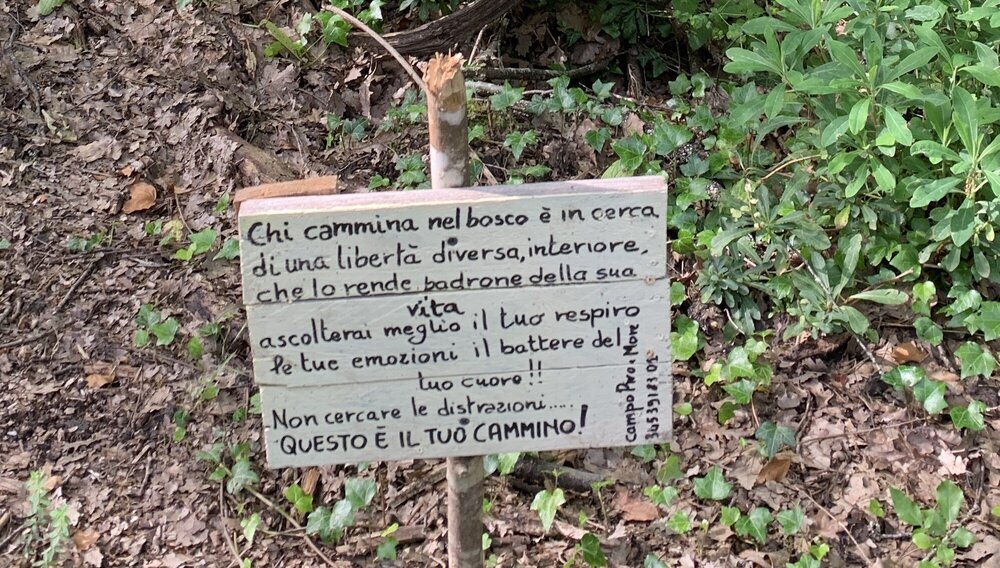 Chi cammina nel bosco è in cerca
di una libertà diversa, interiore,
che lo rende padrone della sua
vita
ascolterai meglio il tuo respiro
le tue emozioni il battere del
tuo cuore!!
Non cercare le distrazioni.....
QUESTO È IL TUO CAMMINO!
campo